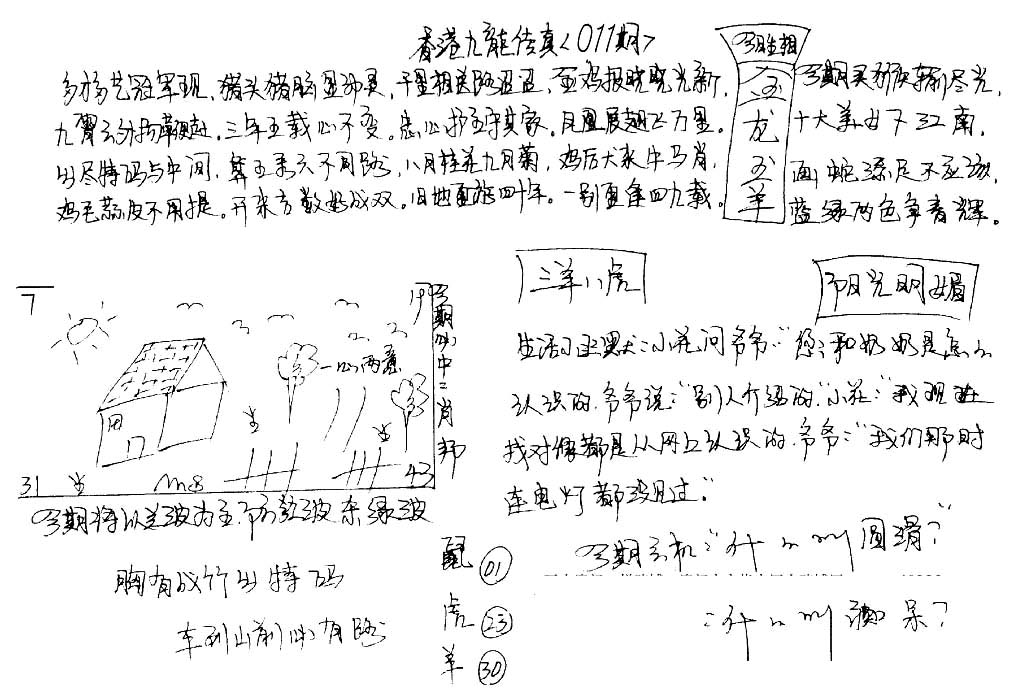 香港九龍传真<011期>
多才多艺冠军现,猪头猪脑显神灵,千里相送路迢迢,金鸡报晓光新,
九霄云外扬鞭赶,三年五载心不变。忠心护主守其家,凤凰展翅飞万里。
出尽特码与中间,算五乘六不同路,八月桂花九月菊,鸡后犬来牛马肖,
鸡毛蒜皮不用提。开来方数好成双。旧地重游四十年。一别直隔四九载。
龙
羊
今期买
尽光,
十大美女下江南,
画蛇添足不应该,
蓝绿两色争春辉。
三羊八虎
阳光明媚
生活小幽默:小花问爷爷"您和奶奶是怎么
认识的.爷爷说:"别人介绍的."小花:"我现在
找对像都是从网上认识的.爷爷:"我们那时
连电灯都没见过."
今期玄机:"什么叫圆滑?"
:什么叫
呆?
7
19
一心两意
用
31
m8
43
今期必中二肖
今期将以兰波为主.防红波杀绿波
胸有成竹出特码
车到山前必有路
01
虎 23
羊 30